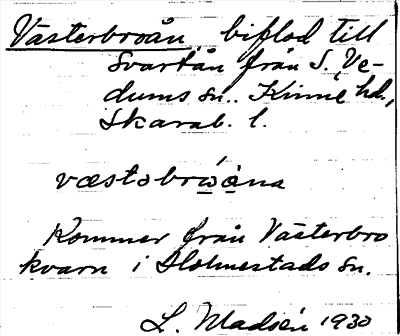 Västerbroån, biflod till
Svartån från S. Ve-
dums sn., Kinne hd,
Skarab. l.
væstəbrώ̲å̲na
Kommer från Västerbro
kvarn i Holmestads sn.
L. Madsén 1930